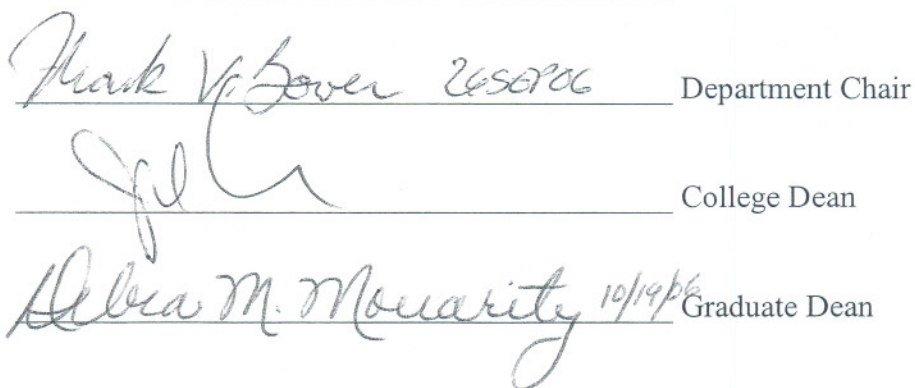 Mark V. Bower 26SEP06 Department Chair
College Dean
Debra M. Moriarity 10/19/06 Graduate Dean